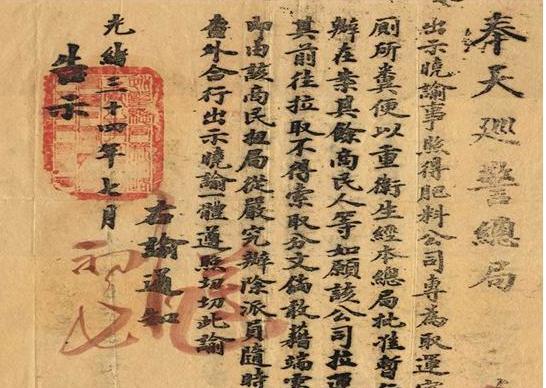 奉天巡警總局
出示曉諭事照得肥料公司專為取運
厠所糞便以重衛生經本總局批准暫
辦在案其餘商民人等如願該公司拉運
其前往拉取不得索取分文倘敢藉端
即由該商民扭局從嚴究辦除派員隨時
查外合行出示曉諭一體遵照切切此諭
右諭通知
光緒三十四年七月
告示